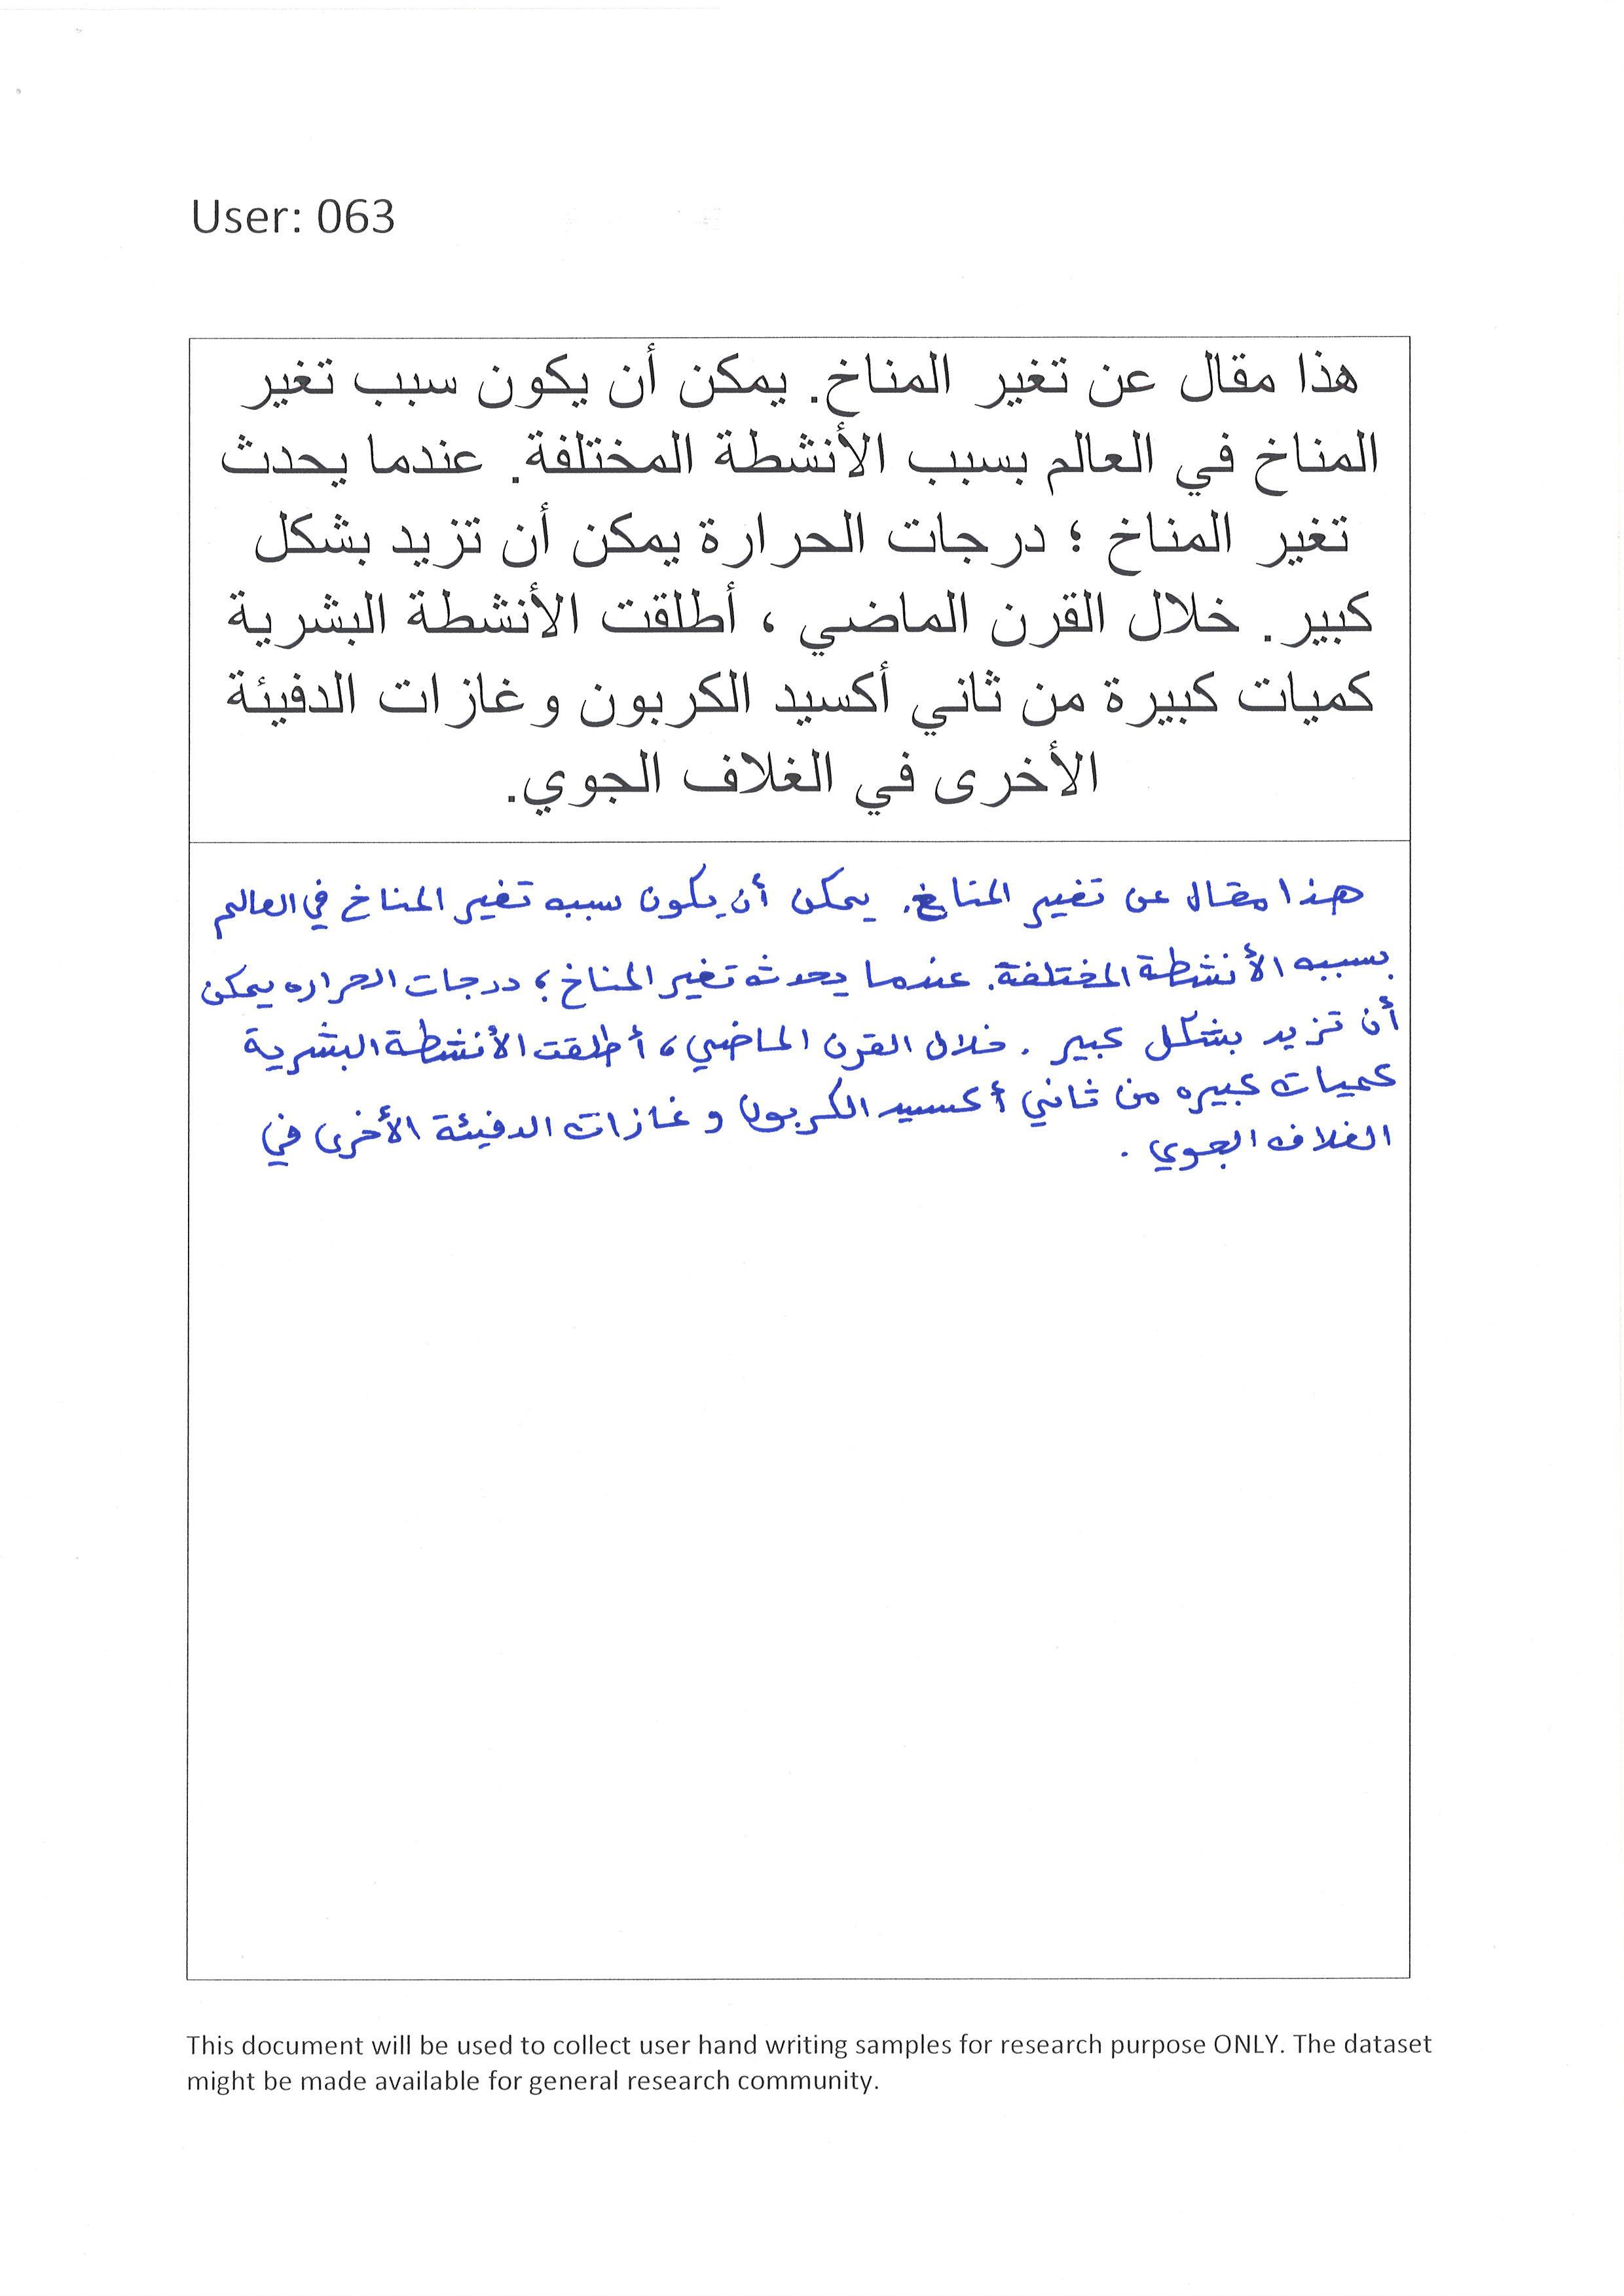 User: 063
هذا مقال عن تغير المناخ. يمكن أن يكون سبب تغير
المناخ في العالم بسبب الأنشطة المختلفة. عندما يحدث
تغير المناخ ؛ درجات الحرارة يمكن أن تزيد بشكل
كبير. خلال القرن الماضي ، أطلقت الأنشطة البشرية
كميات كبيرة من ثاني أكسيد الكربون وغازات الدفيئة
الأخرى في الغلاف الجوي.
هذا مقال عن تغير المناخ. يمكن أن يكون سبب تغير المناخ في العالم
بسبب الأنشطة المختلفة. عندما يحدث تغير المناخ ؛ درجات الحراره يمكن
أن تزيد بشكل كبير . خلال القرن الماضي ، أطلقت الأنشطة البشرية
كميات كبيره من ثاني أكسيد الكربون و غازات الدفيئة الأخرى في
الغلاف الجوي .
This document will be used to collect user hand writing samples for research purpose ONLY. The dataset
might be made available for general research community.